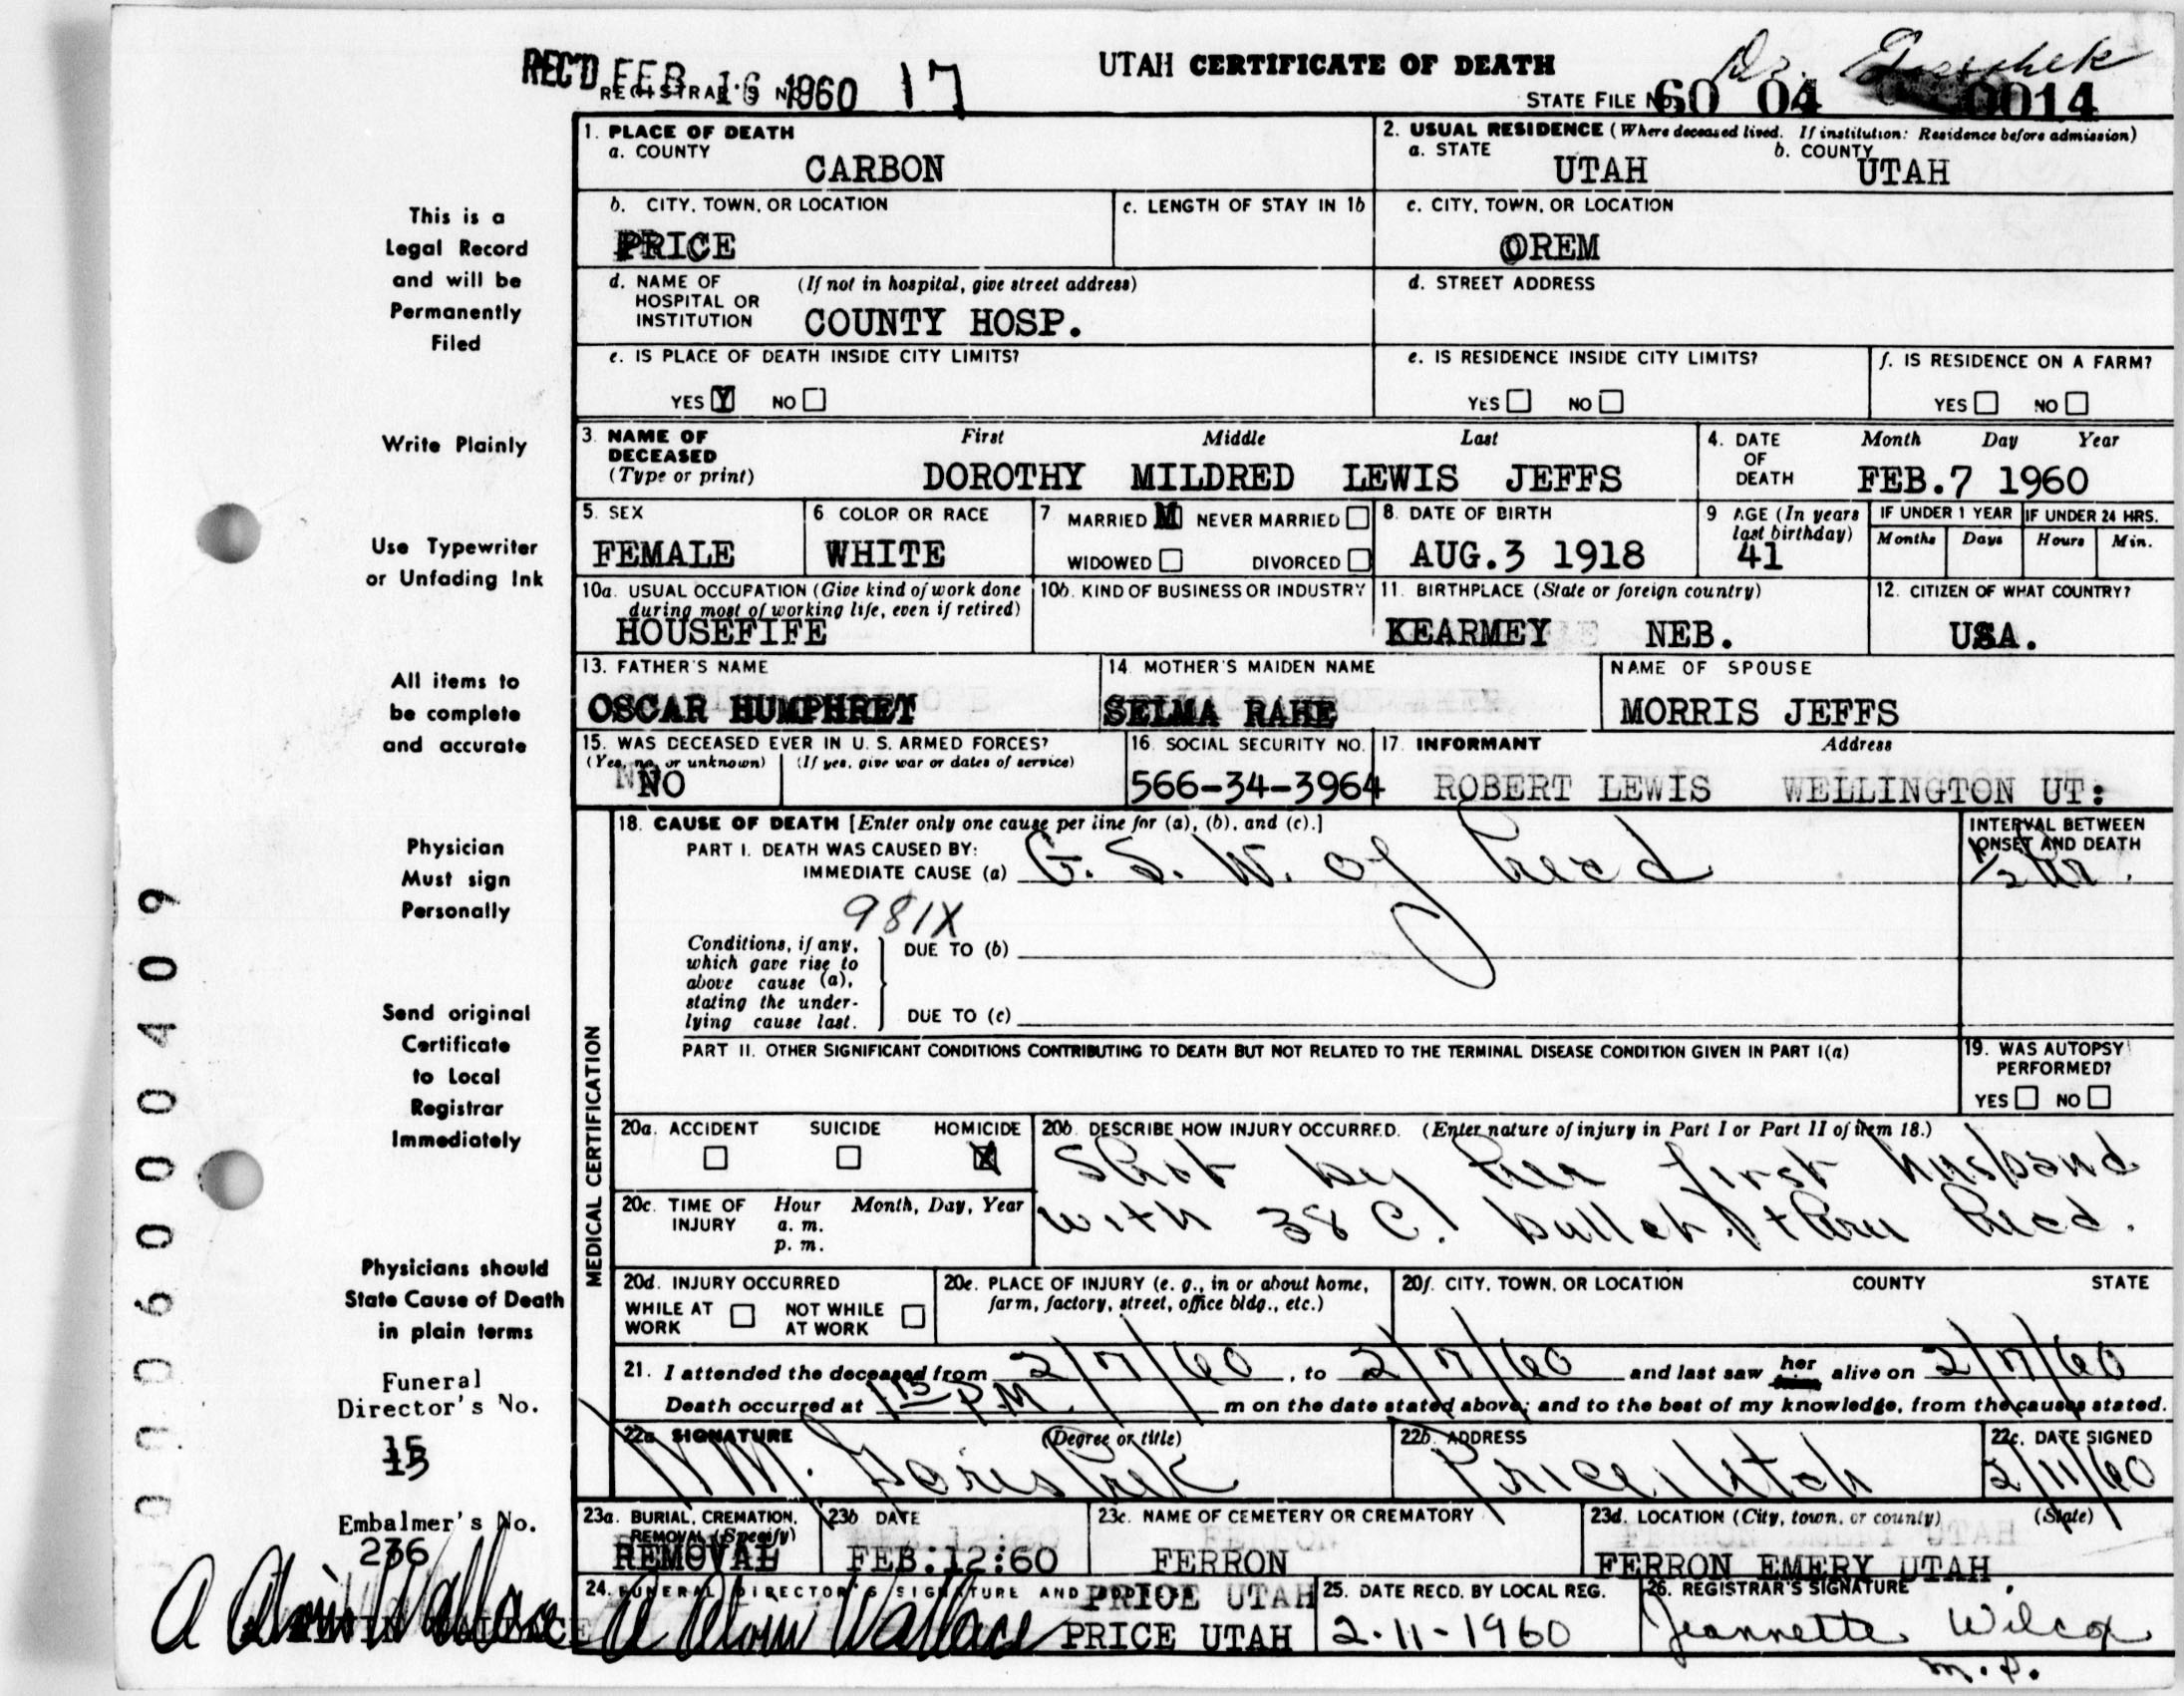 REC'D FEB 16 1960
REGISTRAR'S NO. 17
UTAH CERTIFICATE OF DEATH
Dr.
STATE FILE NO. 60 04 0014
1. PLACE OF DEATH
a. COUNTY
CARBON
2. USUAL RESIDENCE (Where deceased lived. If institution: Residence before admission)
a. STATE b. COUNTY
UTAH UTAH
b. CITY, TOWN, OR LOCATION
PRICE
c. LENGTH OF STAY IN 1b
c. CITY, TOWN, OR LOCATION
OREM
d. NAME OF HOSPITAL OR INSTITUTION (If not in hospital, give street address)
COUNTY HOSP.
d. STREET ADDRESS
e. IS PLACE OF DEATH INSIDE CITY LIMITS?
YES Y NO
e. IS RESIDENCE INSIDE CITY LIMITS?
YES NO
f. IS RESIDENCE ON A FARM?
YES NO
3. NAME OF DECEASED (Type or print) First Middle Last
DOROTHY MILDRED LEWIS JEFFS
4. DATE OF DEATH Month Day Year
FEB.7 1960
5. SEX
FEMALE
6. COLOR OR RACE
WHITE
7 MARRIED M NEVER MARRIED
WIDOWED DIVORCED
8. DATE OF BIRTH
AUG.3 1918
9 AGE (In years last birthday)
41
IF UNDER 1 YEAR IF UNDER 24 HRS.
Months Days Hours Min.
10a. USUAL OCCUPATION (Give kind of work done during most of working life, even if retired)
HOUSEFIFE
10b. KIND OF BUSINESS OR INDUSTRY
11. BIRTHPLACE (State or foreign country)
KEARMEY NEB.
12. CITIZEN OF WHAT COUNTRY?
USA.
13. FATHER'S NAME
OSCAR HUMPHRET
14. MOTHER'S MAIDEN NAME
SELMA RAHE
NAME OF SPOUSE
MORRIS JEFFS
15. WAS DECEASED EVER IN U. S. ARMED FORCES?
(Yes, no, or unknown) (If yes, give war or dates of service)
NO
16. SOCIAL SECURITY NO.
566-34-3964
17. INFORMANT Address
ROBERT LEWIS WELLINGTON UT:
MEDICAL CERTIFICATION
18. CAUSE OF DEATH [Enter only one cause per line for (a), (b), and (c).]
PART I. DEATH WAS CAUSED BY:
IMMEDIATE CAUSE (a) G. S. W. of head
INTERVAL BETWEEN ONSET AND DEATH
1/2 hr.
981X
Conditions, if any, which gave rise to above cause (a), stating the underlying cause last.
DUE TO (b)
DUE TO (c)
PART II. OTHER SIGNIFICANT CONDITIONS CONTRIBUTING TO DEATH BUT NOT RELATED TO THE TERMINAL DISEASE CONDITION GIVEN IN PART I(a)
19. WAS AUTOPSY PERFORMED?
YES NO
20a. ACCIDENT SUICIDE HOMICIDE
X
20b. DESCRIBE HOW INJURY OCCURRED. (Enter nature of injury in Part I or Part II of item 18.)
Shot by her first husband
with 38 C. bullet thru head.
20c. TIME OF INJURY Hour Month, Day, Year
a. m.
p. m.
20d. INJURY OCCURRED
WHILE AT WORK NOT WHILE AT WORK
20e. PLACE OF INJURY (e. g., in or about home, farm, factory, street, office bldg., etc.)
20f. CITY, TOWN, OR LOCATION COUNTY STATE
21. I attended the deceased from 2/7/60, to 2/7/60 and last saw her alive on 2/7/60
Death occurred at 1 15 P.M. m on the date stated above; and to the best of my knowledge, from the causes stated.
22a. SIGNATURE (Degree or title)
22b. ADDRESS
Price, Utah
22c. DATE SIGNED
2/11/60
23a. BURIAL, CREMATION, REMOVAL (Specify)
REMOVAL
23b DATE
FEB:12:60
23c. NAME OF CEMETERY OR CREMATORY
FERRON
23d. LOCATION (City, town, or county) (State)
FERRON EMERY UTAH
24. FUNERAL DIRECTOR'S SIGNATURE AND ADDRESS
PRICE UTAH
A Alvin Wallace PRICE UTAH
25. DATE RECD. BY LOCAL REG.
2-11-1960
26. REGISTRAR'S SIGNATURE
Jeannette Wilcox
This is a
Legal Record
and will be
Permanently
Filed
Write Plainly
Use Typewriter
or Unfading Ink
All items to
be complete
and accurate
Physician
Must sign
Personally
Send original
Certificate
to Local
Registrar
Immediately
Physicians should
State Cause of Death
in plain terms
Funeral
Director's No.
Embalmer's No.
236
A Alvin Wallace
006000409